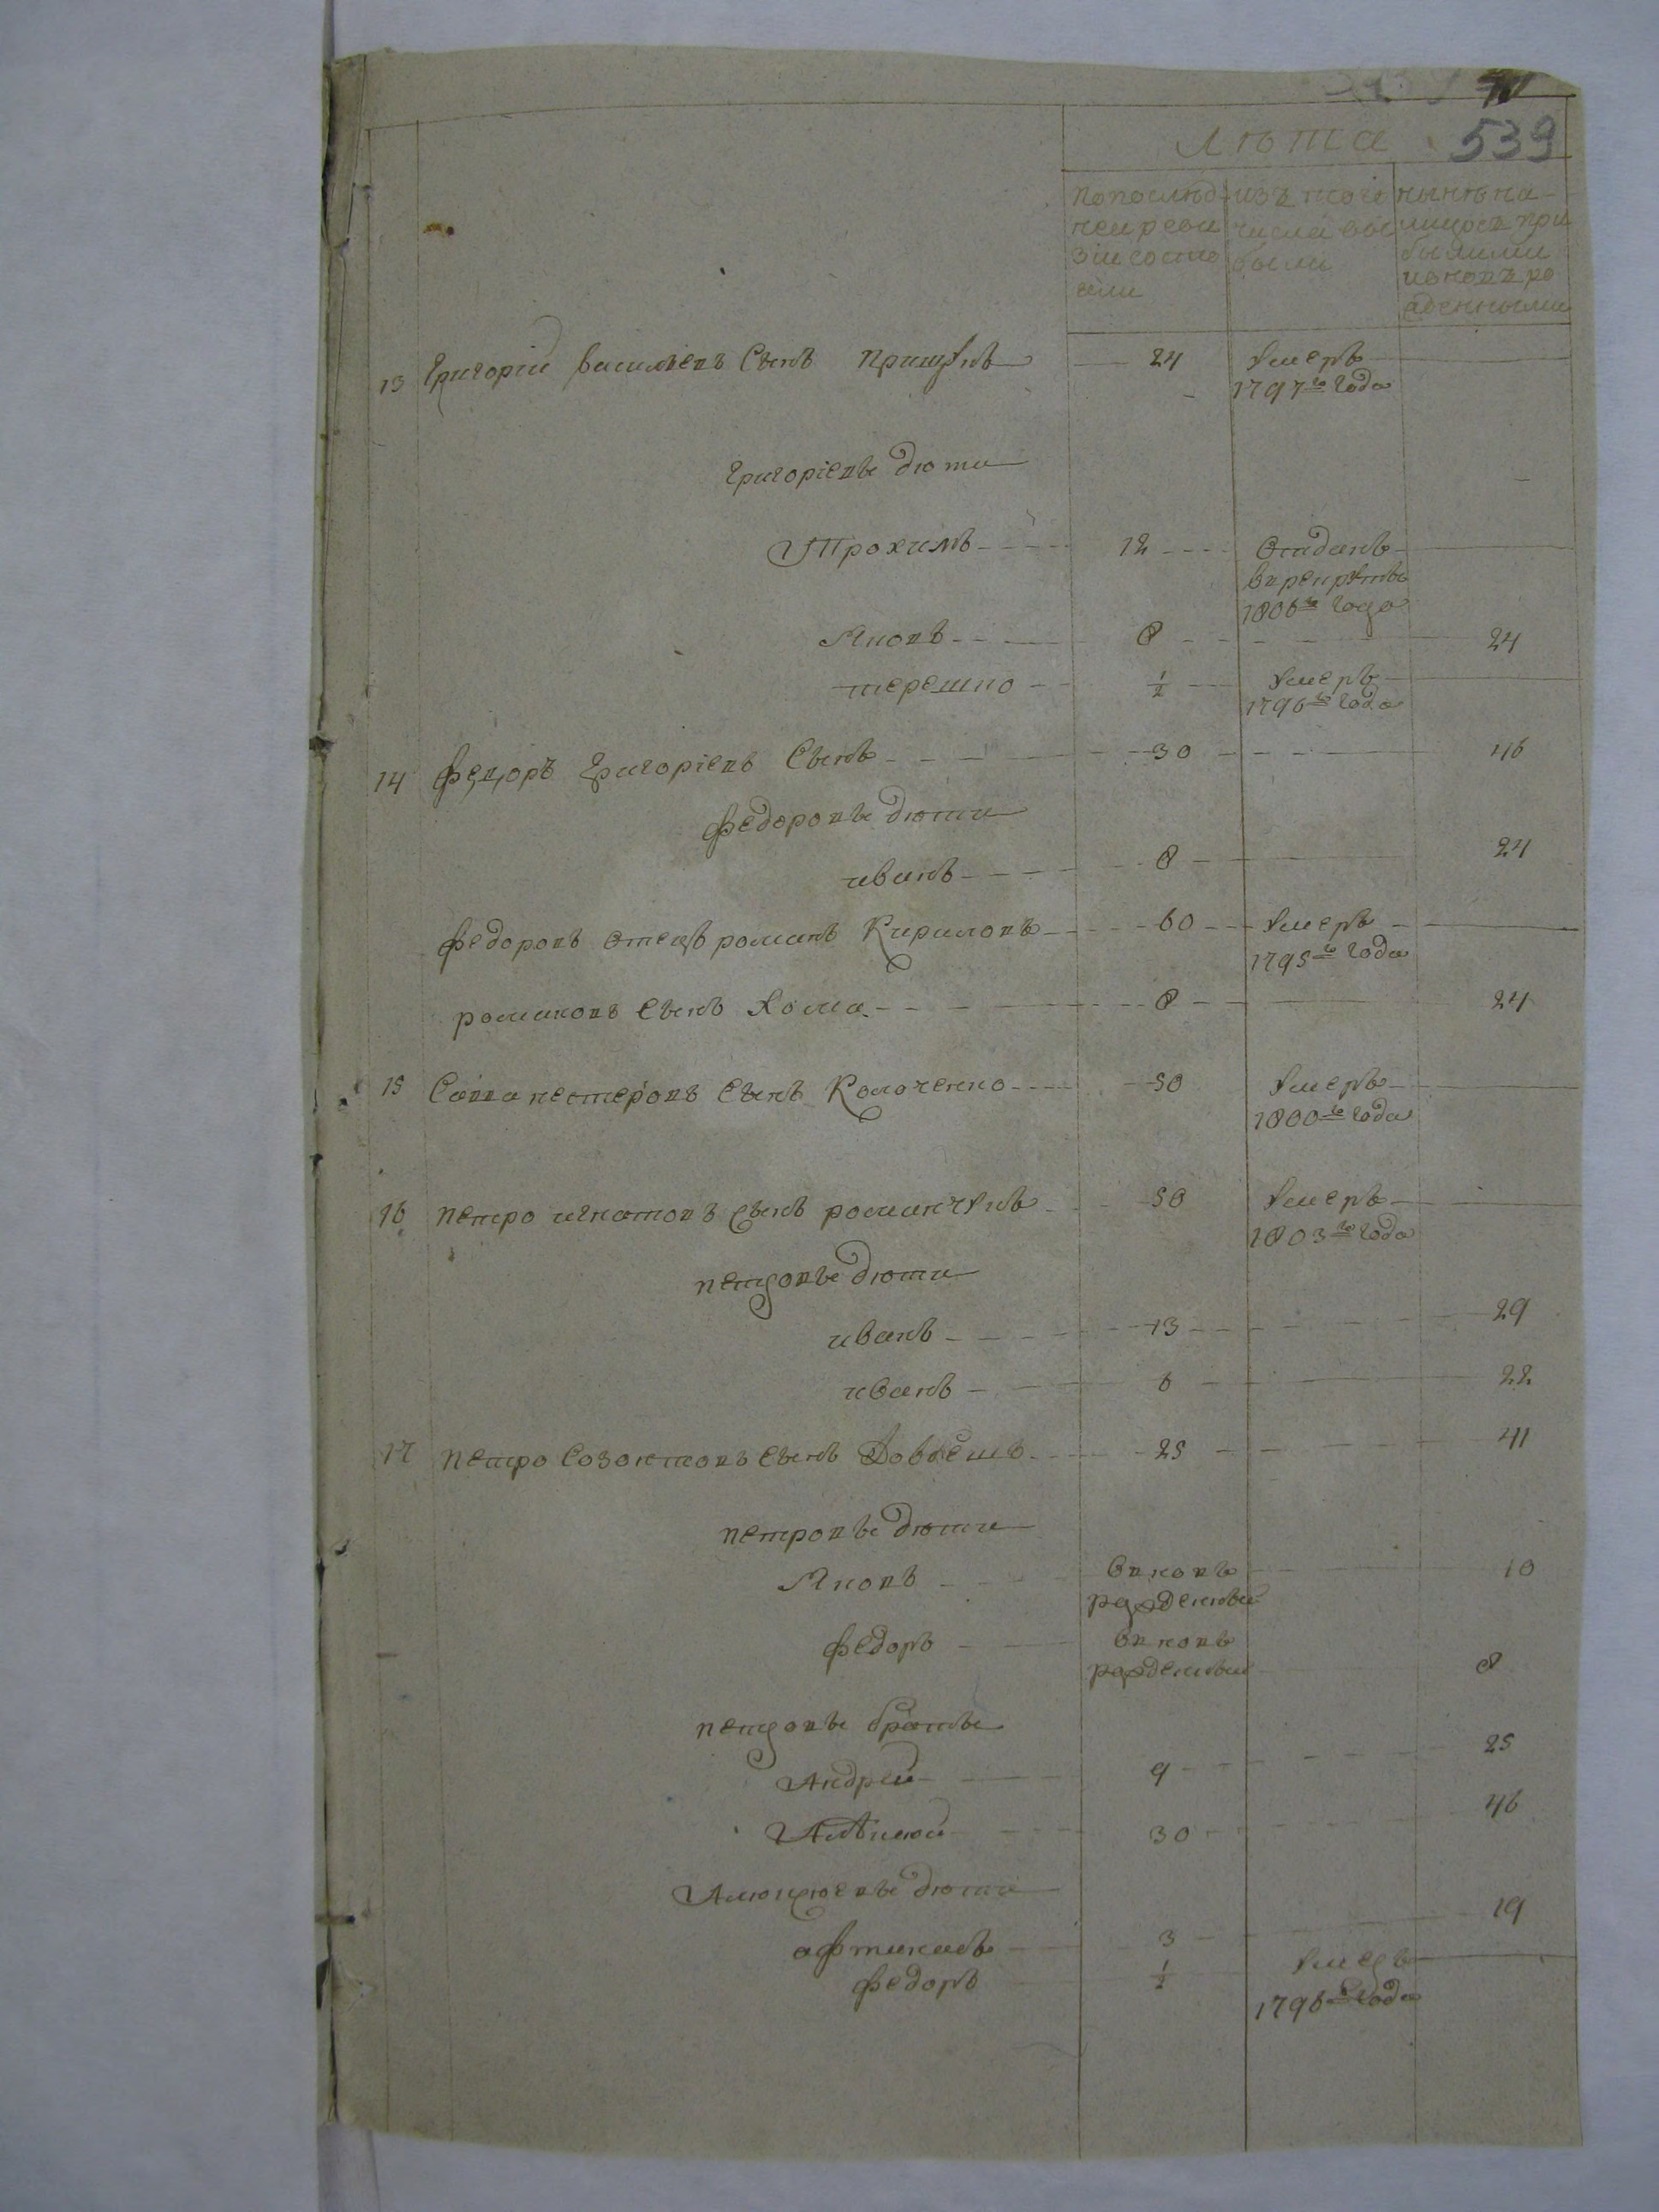 539
Лѣта
попослѣд
ней реви
зіи состо
яли
изъ того
числа вы
были
нынѣ на
лицо съ при
былими
и вновь ро
жденными
13 Григорій васильевъ Сынъ 24 Умеръ
1797го года
Григорiевы дѣти
Трохимъ 12 Отданъ
в рекруты
1806го года
Яковъ 8 24
терешко ½ Умеръ
1796го года
14 федоръ Григорiевъ Сынъ 30 46
федоровы дѣти
иванъ 8 24
федоровъ отецъ романъ Кириловъ 60 Умеръ
1795го года
романовъ Сынъ Хома 8 24
15 Савва нестеровъ Сынъ 50 Умеръ
1800го года
16 петро игнатовъ Сынъ романчукъ 50 Умеръ
1803го года
петровы дѣти
иванъ 13 29
иванъ 6 22
17 петро Созонтовъ Сынъ 25 41
петровы дѣти
Яковъ вновь 10
рожденный
федоръ вновь
рожденный 8
петровы браты
Андрей 9 25
Алѣксѣй 30 46
Алѣксѣевы дѣти
афтанасъ 3 19
федоръ ½ Умеръ
1796го года